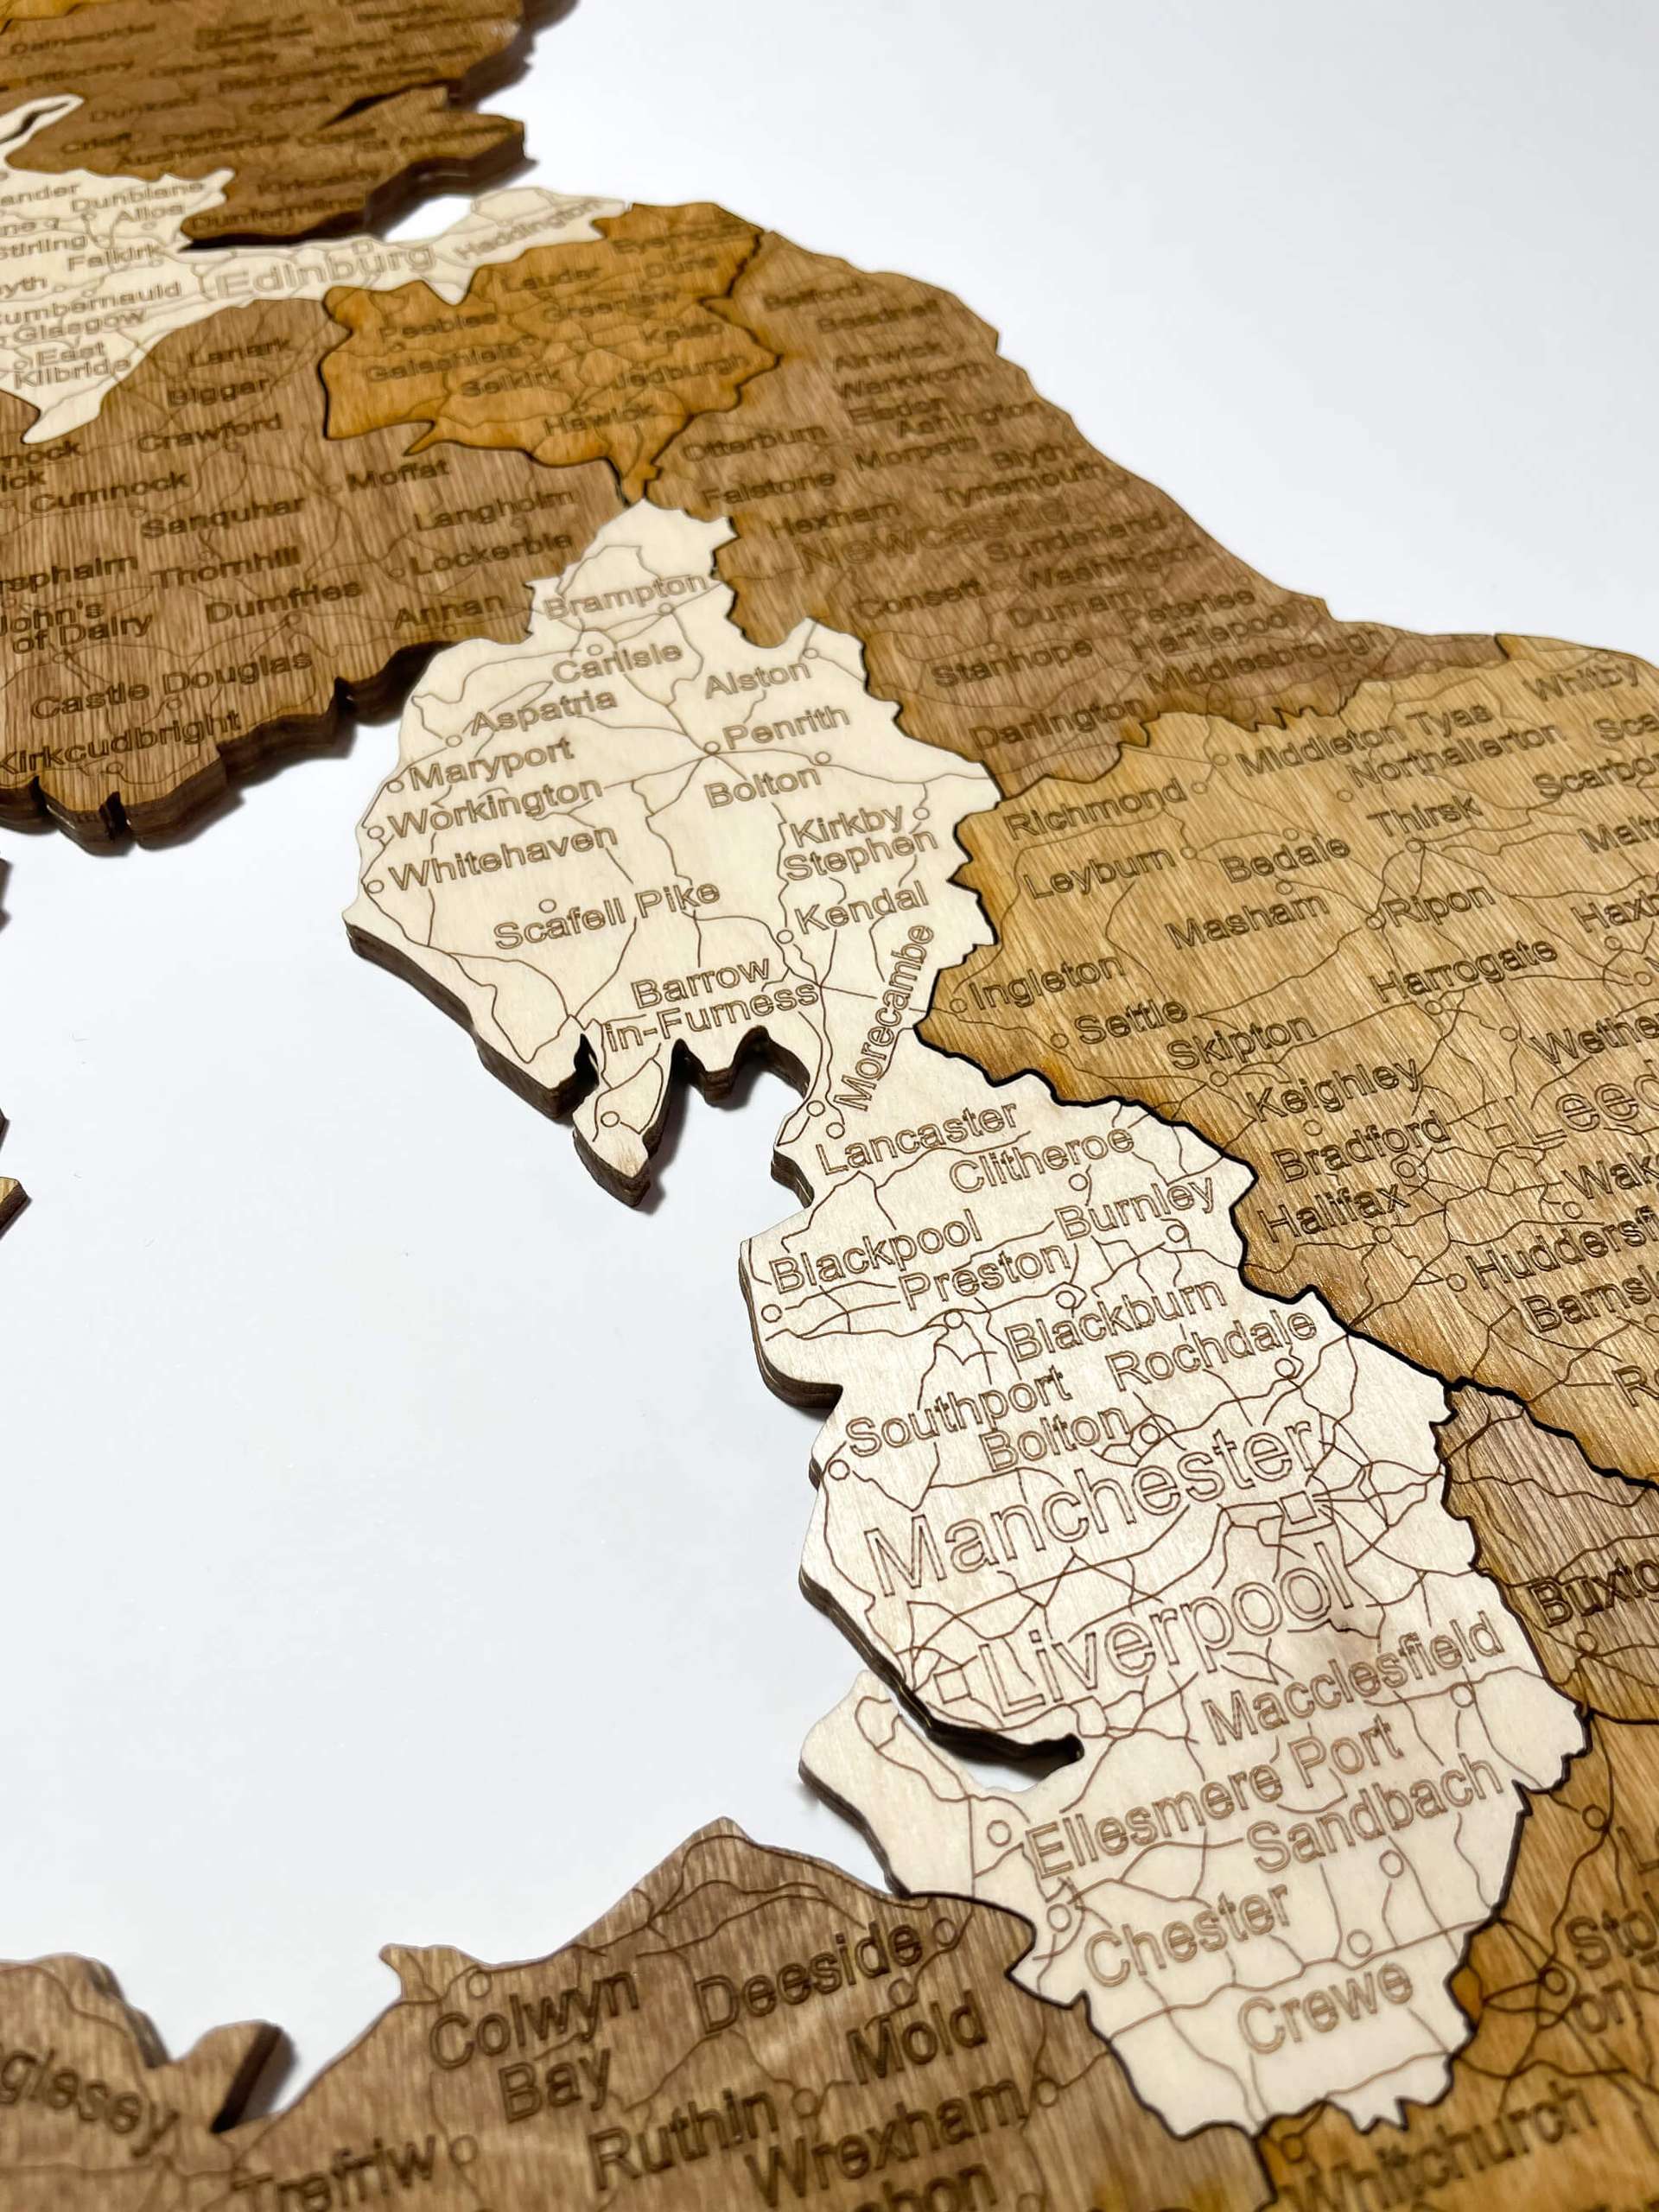 Dunkeld
Crieff
Perth
Auchterarder
Cupar
Kirkcaldy
Dunfermline
Dunblane
Alloa
Stirling
Falkirk
Haddington
Edinburg
Glasgow
East
Kilbride
Lauder
Duns
Peebles
Greenlaw
Kelso
Galashiels
Selkirk
Jedburgh
Hawick
Lanark
Biggar
Crawford
Cumnock
Moffat
Sanquhar
Langholm
Thornhill
Lockerbie
John's
of Dalry
Dumfries
Annan
Castle Douglas
Kirkcudbright
Belford
Alnwick
Warkworth
Elsdon
Ashington
Otterburn
Morpeth
Blyth
Falstone
Tynemouth
Hexham
Newcastle
Sunderland
Washington
Consett
Durham
Peterlee
Hartlepool
Stanhope
Middlesbrough
Darlington
Brampton
Carlisle
Alston
Aspatria
Penrith
Maryport
Bolton
Workington
Kirkby
Stephen
Whitehaven
Scafell Pike
Kendal
Barrow
in-Furness
Morecambe
Whitby
Middleton Tyas
Northallerton
Richmond
Thirsk
Leyburn
Bedale
Masham
Ripon
Ingleton
Harrogate
Settle
Skipton
Keighley
Bradford
Halifax
Lancaster
Clitheroe
Burnley
Blackpool
Preston
Blackburn
Rochdale
Southport
Bolton
Manchester
Liverpool
Macclesfield
Ellesmere Port
Sandbach
Chester
Crewe
Colwyn
Bay
Deeside
Mold
Ruthin
Wrexham
Trefriw
Whitchurch